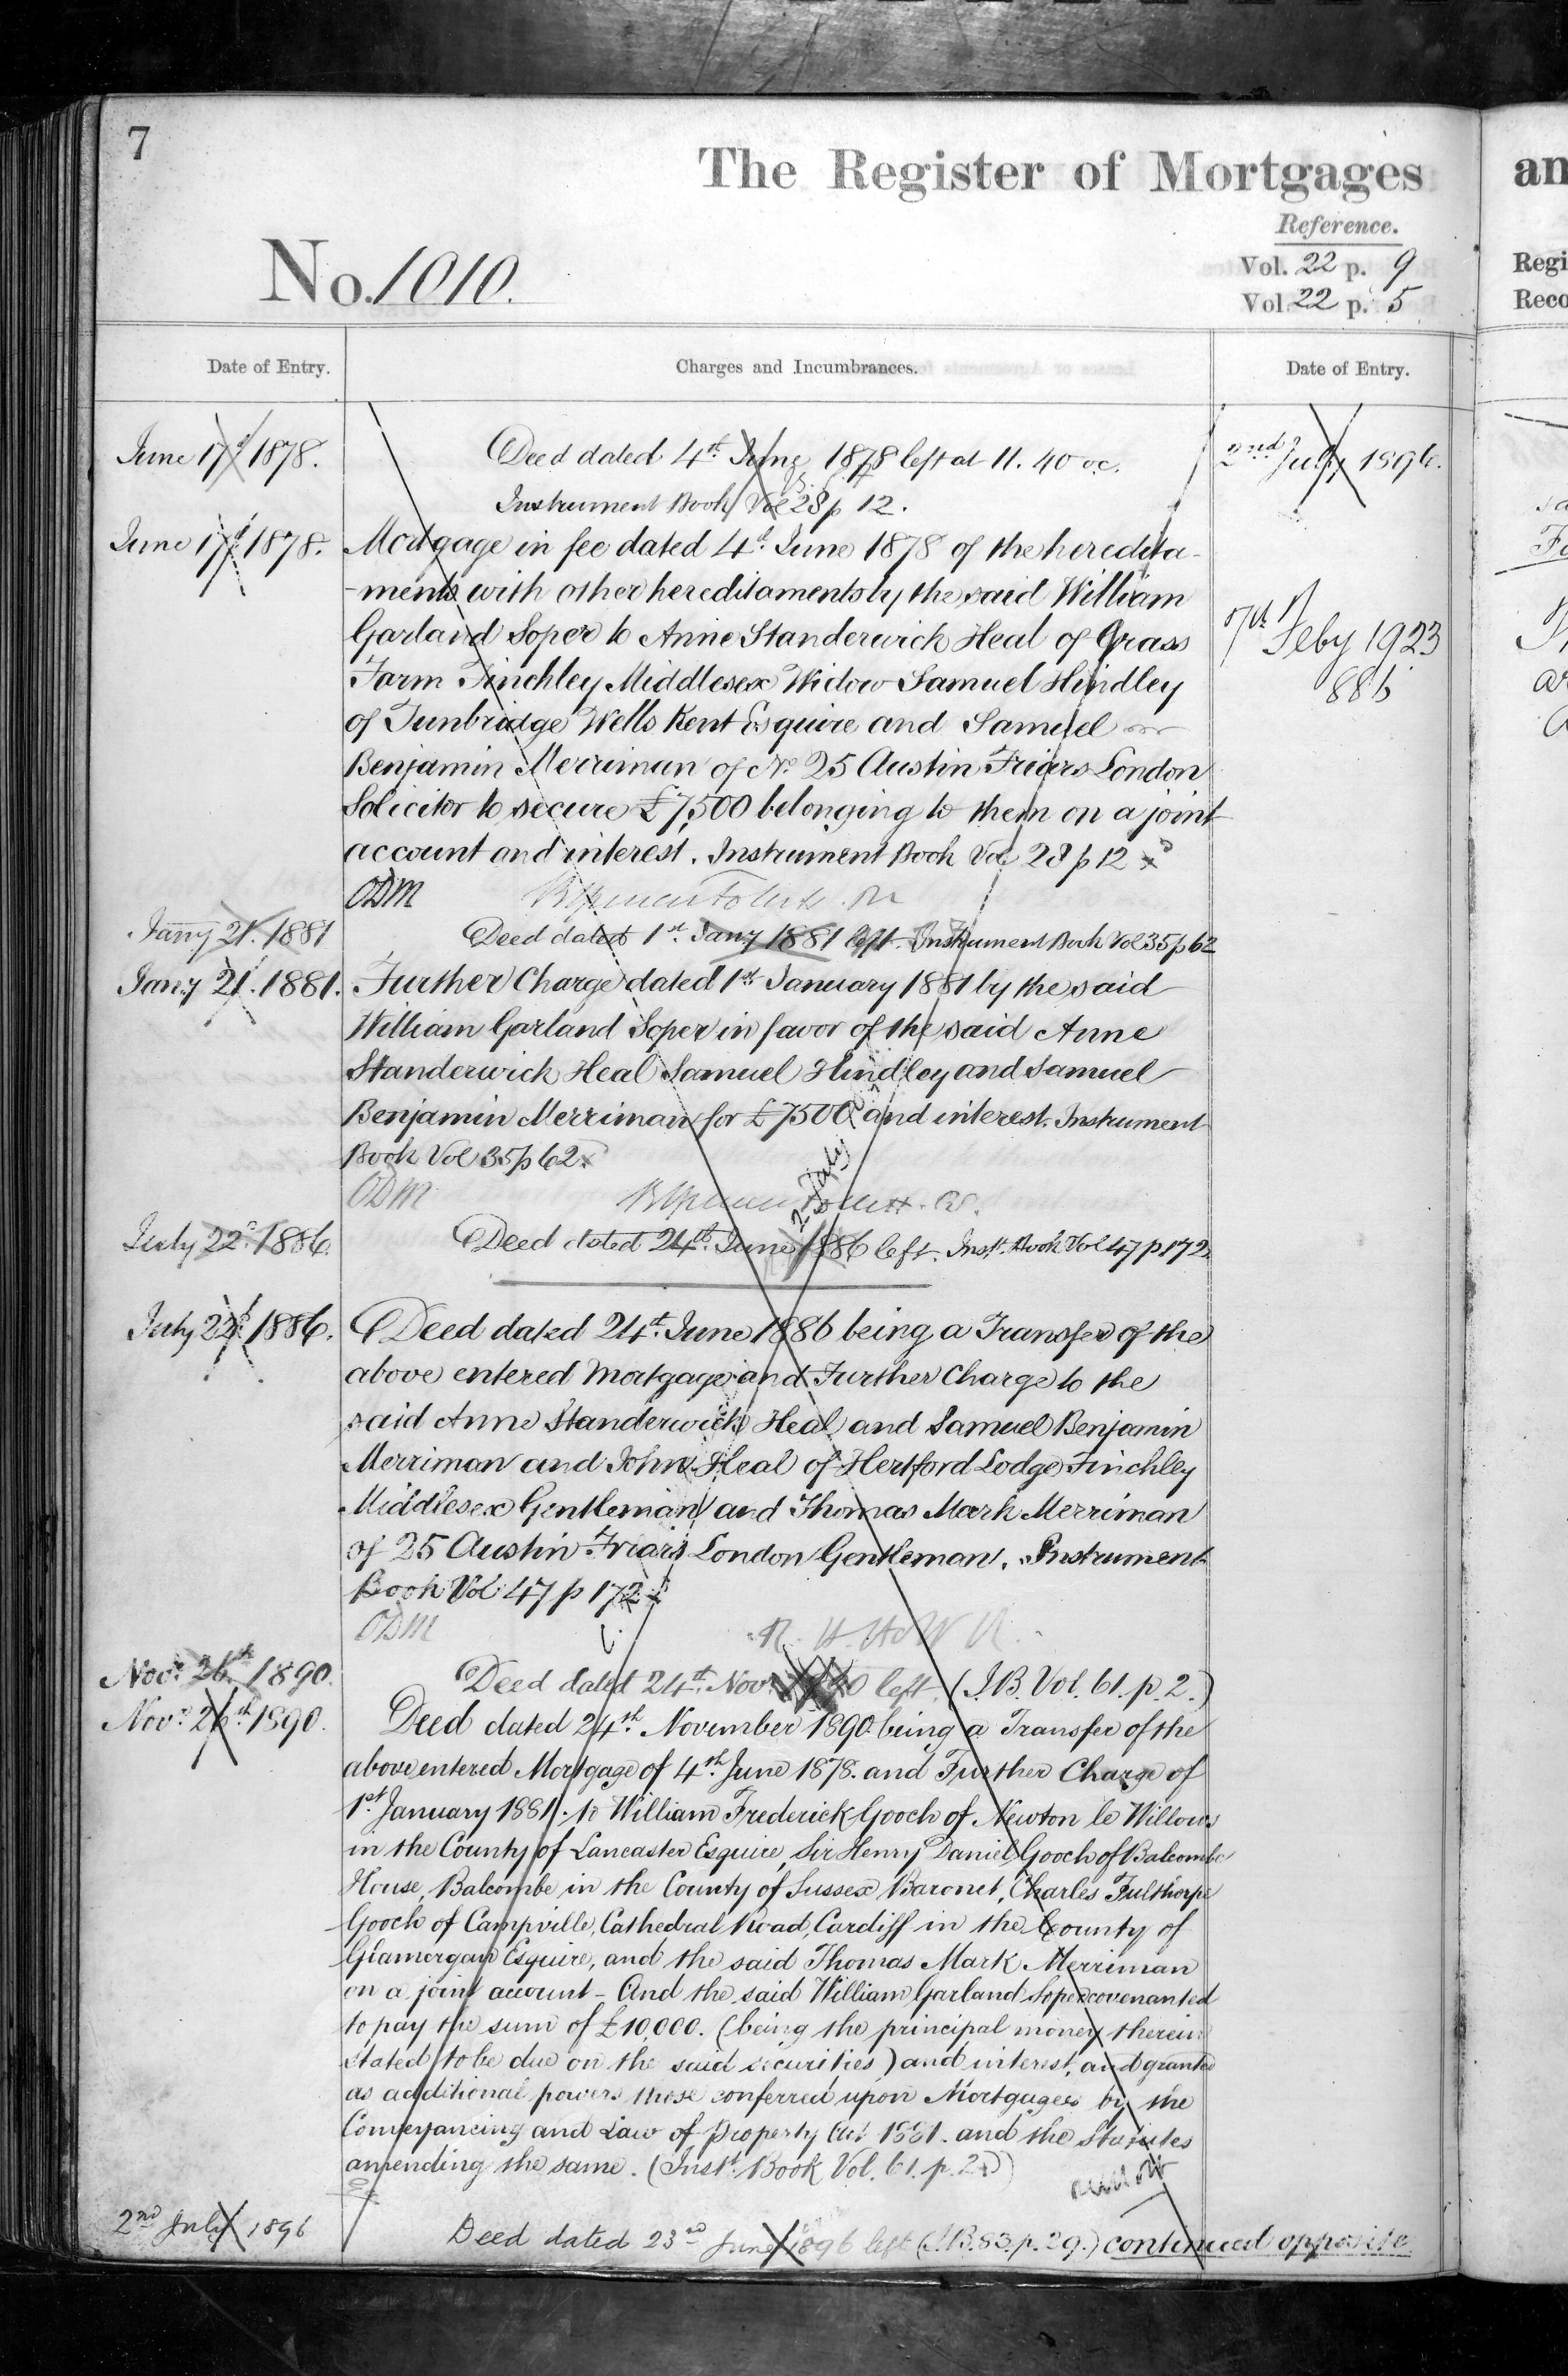 7
The Register of Mortgages
an
Reference.
No. 1010.
Vol. 22 p. 9
Vol. 22 p. 5
Regi
Reco
Date of Entry.
Charges and Incumbrances.
Date of Entry.
June 17th 1878.
Deed dated 4th June 1878 left at 11. 40 oc.
Instrument Book Vol 28 p 12.
2nd July 1896.
June 17th 1878.
Mortgage in fee dated 4th June 1878 of the heredita-
-ments with other hereditaments by the said William
Garland Soper to Anne Standerwick Heal of Grass
Farm Finchley Middlesex Widow Samuel Hindley
of Tunbridge Wells Kent Esquire and Samuel
Benjamin Merriman of No. 25 Austin Friars London
Solicitor to secure £7,500 belonging to them on a joint
account and interest. Instrument Book Vol 28 p 12
ODM
Feby 1923
886
Jany 21. 1881
Deed dated 1st Jany 1881 left. Instrument Book Vol 35 p 62
Jany 21. 1881.
Further Charge dated 1st January 1881 by the said
William Garland Soper in favor of the said Anne
Standerwick Heal Samuel Hindley and Samuel
Benjamin Merriman for £7500 and interest. Instrument
Book Vol 35 p 62
ODM
July 22d 1886.
Deed dated 24th June 1886 left. Inst. Book Vol 47 p 172.
July 22d 1886.
Deed dated 24th June 1886 being a Transfer of the
above entered Mortgage and Further Charge to the
said Anne Standerwick Heal and Samuel Benjamin
Merriman and John Heal of Hertford Lodge Finchley
Middlesex Gentleman and Thomas Mark Merriman
of 25 Austin Friars London Gentleman. Instrument
Book Vol 47 p 172
ODM
Novr 26th 1890.
Deed dated 24th Novr 1890 left. (I.B. Vol. 61. p. 2.)
Novr 26th 1890.
Deed dated 24th November 1890 being a Transfer of the
above entered Mortgage of 4th June 1878. and Further Charge of
1st January 1881. to William Frederick Gooch of Newton le Willows
in the County of Lancaster Esquire, Sir Henry Daniel Gooch of Balcombe
House, Balcombe in the County of Sussex Baronet, Charles Fulthorpe
Gooch of Campville, Cathedral Road, Cardiff in the County of
Glamorgan Esquire, and the said Thomas Mark Merriman
on a joint account - And the said William Garland Soper covenanted
to pay the sum of £10,000. (being the principal money therein
stated to be due on the said securities) and interest, and granted
as additional powers those conferred upon Mortgagees by the
Conveyancing and Law of Property Act 1881. and the Statutes
amending the same. (Inst. Book Vol. 61. p. 2)
2nd July 1896
Deed dated 23rd June 1896 left (I.B. 83. p. 29.) continued opposite